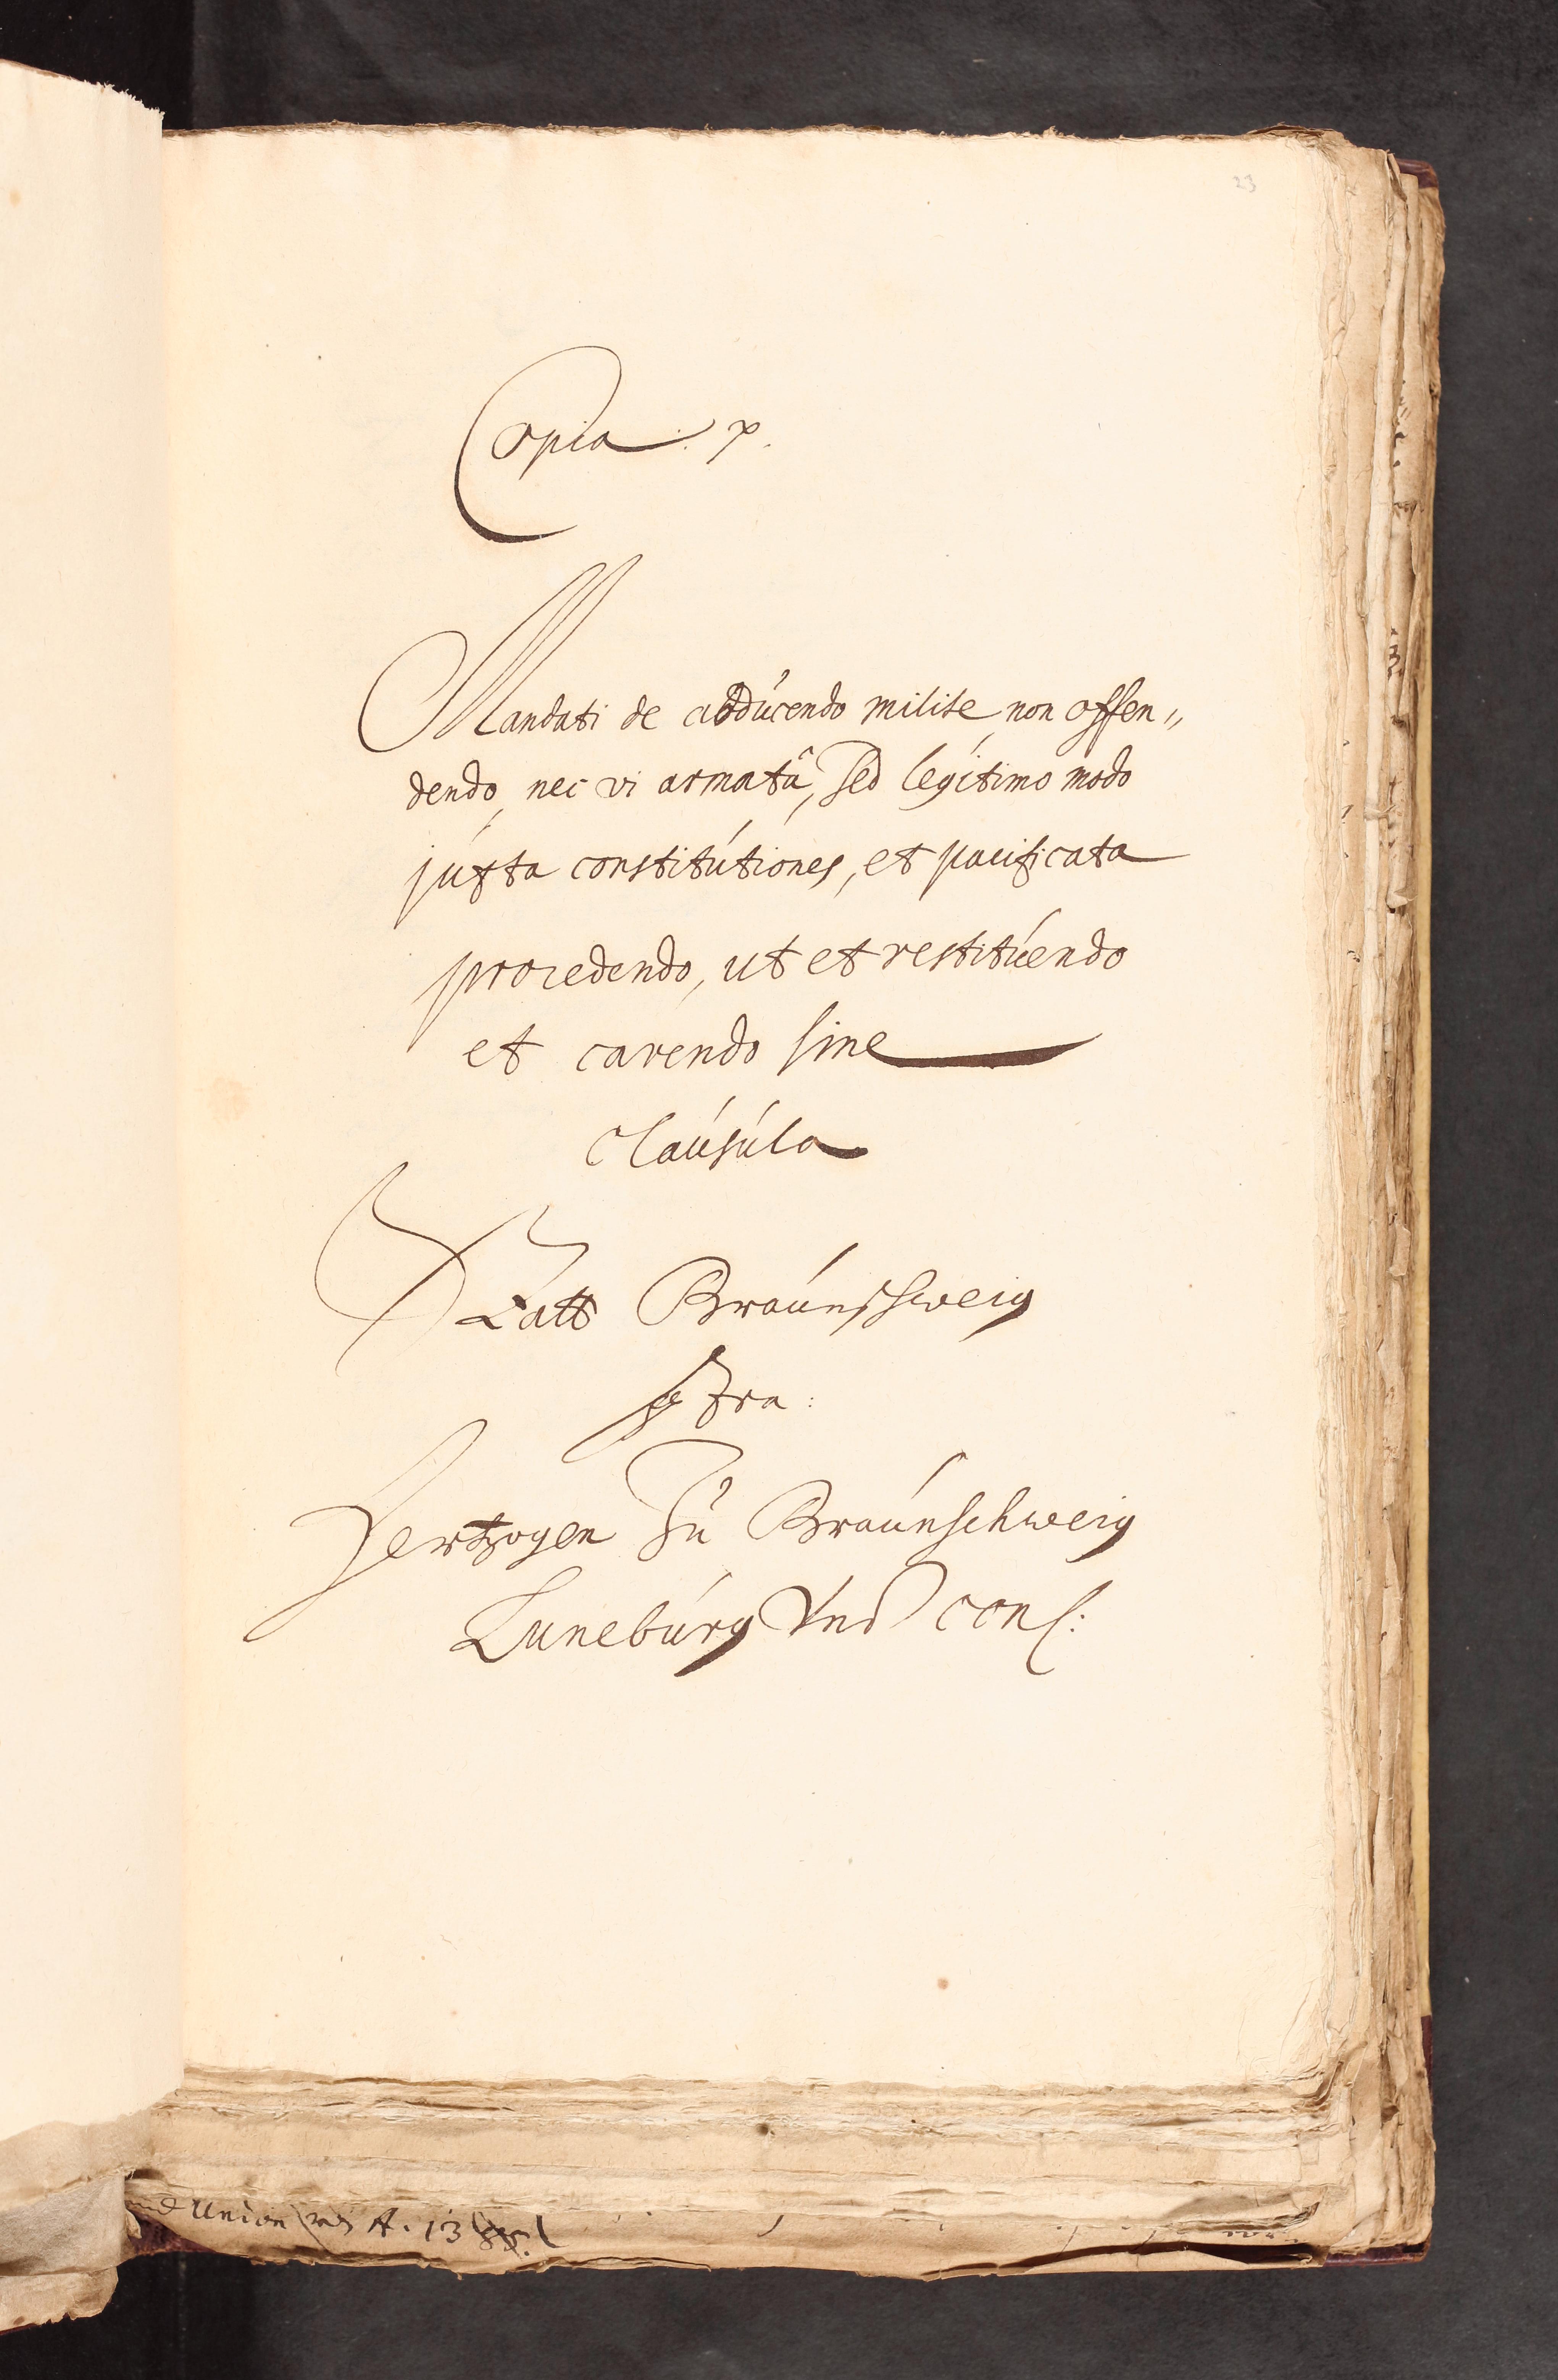 23
Copia. p.
Mandati de abducendo milite, non offen„
dendo, nec vi armatâ, sed legitimo modo
juxta constitutiones, et pacificata
procedendo, ut et restituendo
et cavendo sine
Clausula
Statt Braunschweig
Hertzogen Zu Braunschweig
Luneburg Vnd cons:
Union A. 13